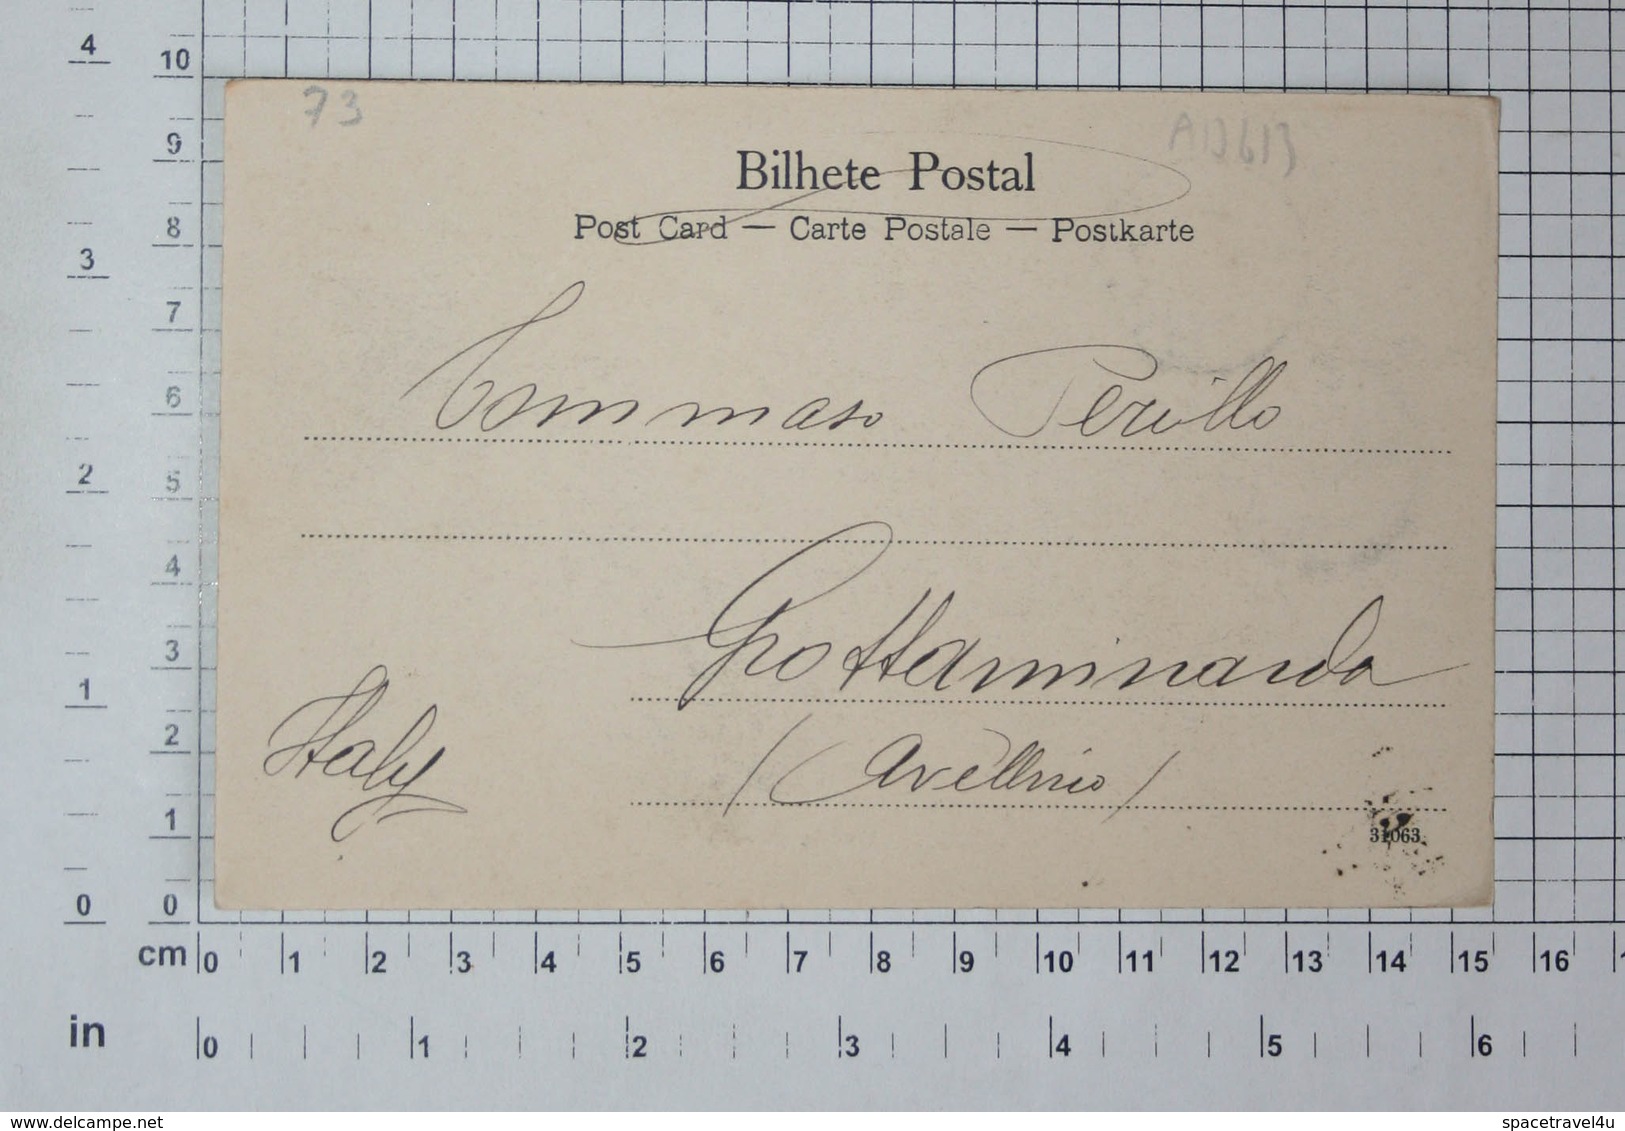 73
Bilhete Postal
Post Card — Carte Postale — Postkarte
Tommaso Perillo
Grottaminarda
Italy
(Avellino)
31063
4
3
2
1
0
10
9
8
7
6
5
4
3
2
1
0
cm 0 1 2 3 4 5 6 7 8 9 10 11 12 13 14 15 16
in 0 1 2 3 4 5 6
www.delcampe.net
spacetravel4u